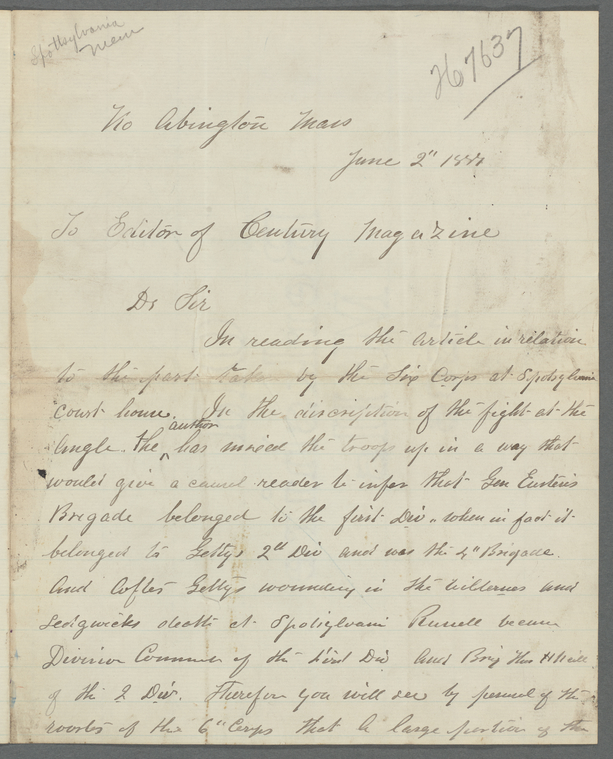 Spottsylvania
Mem
767637
No Abington Mass
June 2" 188
To Editor of Century Magazine
Dr Sir
In reading the article in relation
to the part take by the Six Corps at Spotsylvania
court house. In the discription of the fight at the
Angle. the author has mixed the troops up in a way that
would give a causel reader to infer that Gen Eustis's
Brigade belonged to the first Div. when in fact it
belonged to Gettys 2nd Div and was the 4" Brigade.
And after Gettys wounding in the Wilderness and
Sedgwicks death at Spotsylvani Russell became
Division Commander of the first Div and Brig Thos H Neill
of the 2 Div. Therefore you will see by perusel of the
roster of the 6" Corps that a large portion of the